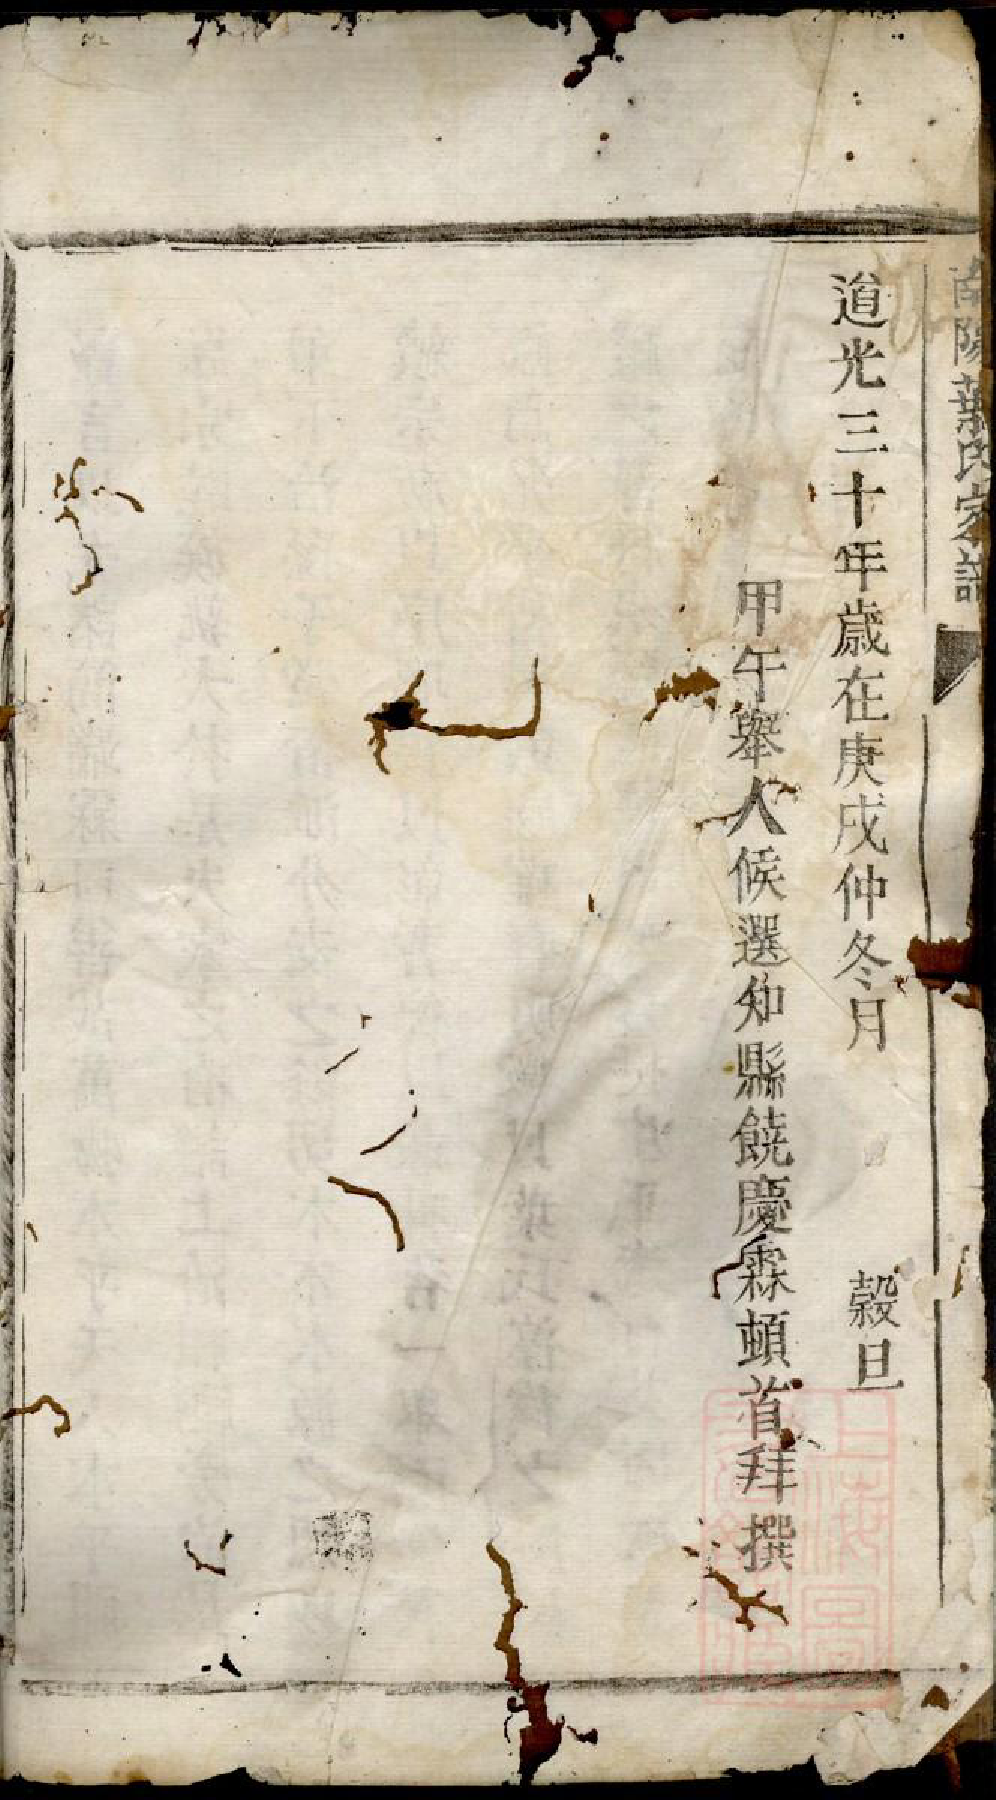 南陽葉氏宗譜
道光三十年歲在庚戌仲冬月　穀旦
甲午舉人候選知縣饒慶霖頓首拜撰